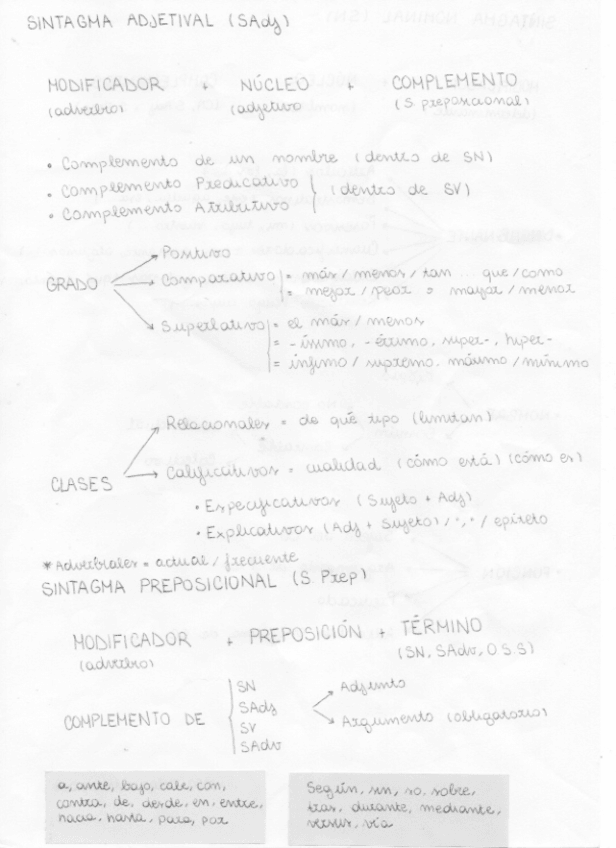 SINTAGMA ADJETIVAL (SAdj)
MODIFICADOR + NÚCLEO + COMPLEMENTO
(adverbio) (adjetivo (S preposicional)
• Complemento de un nombre (dentro de SN)
• Complemento Predicativo
• Complemento Atributivo
(dentro de SV)
GRADO
Positivo
Comparativo = más / menos / tan ... que / como
= mejor / peor o mayor / menor
Superlativo = el más / menos
= -ísimo, -érrimo, super-, hiper-
= ínfimo / supremo. máximo / mínimo
CLASES
Relacionales = de qué tipo (limitan)
Calificativos = cualidad (cómo está) (cómo es)
• Especificativos (Sujeto + Adj)
• Explicativos (Adj + Sujeto) / "," / epíteto
* Adverbiales = actual / frecuente
SINTAGMA PREPOSICIONAL (S. Prep)
MODIFICADOR + PREPOSICIÓN + TÉRMINO
(adverbio) (SN, SAdv, O.S.S)
COMPLEMENTO DE
SN
SAdj
SV
SAdv
Adjunto
Argumento (obligatorio)
a, ante, bajo, cabe, con,
contra, de, desde, en, entre,
hacia, hasta, para, por
Según, sin, so, sobre,
tras, durante, mediante,
versus, vía